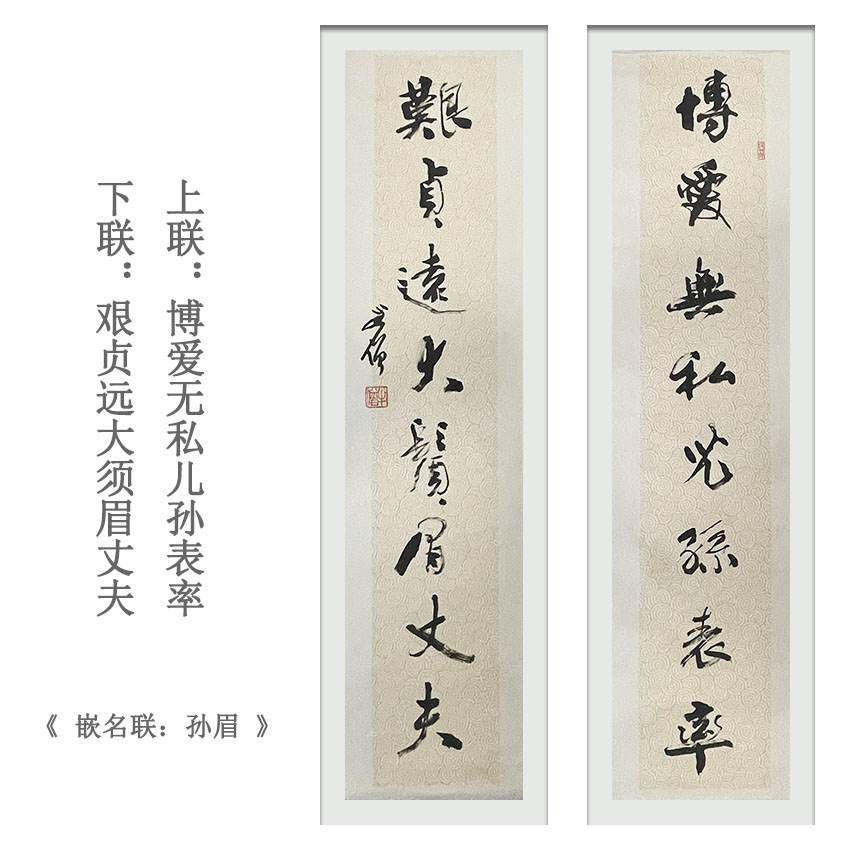 上联：博爱无私儿孙表率
下联：艰贞远大须眉丈夫
《 嵌名联：孙眉 》
博愛無私兒孫表率
艱貞遠大鬚眉丈夫